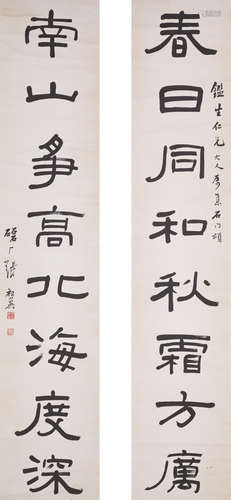 春日同和秋霜方厲
鑑生仁兄大人屬集石門頌
南山爭高北海度深
張祖翼